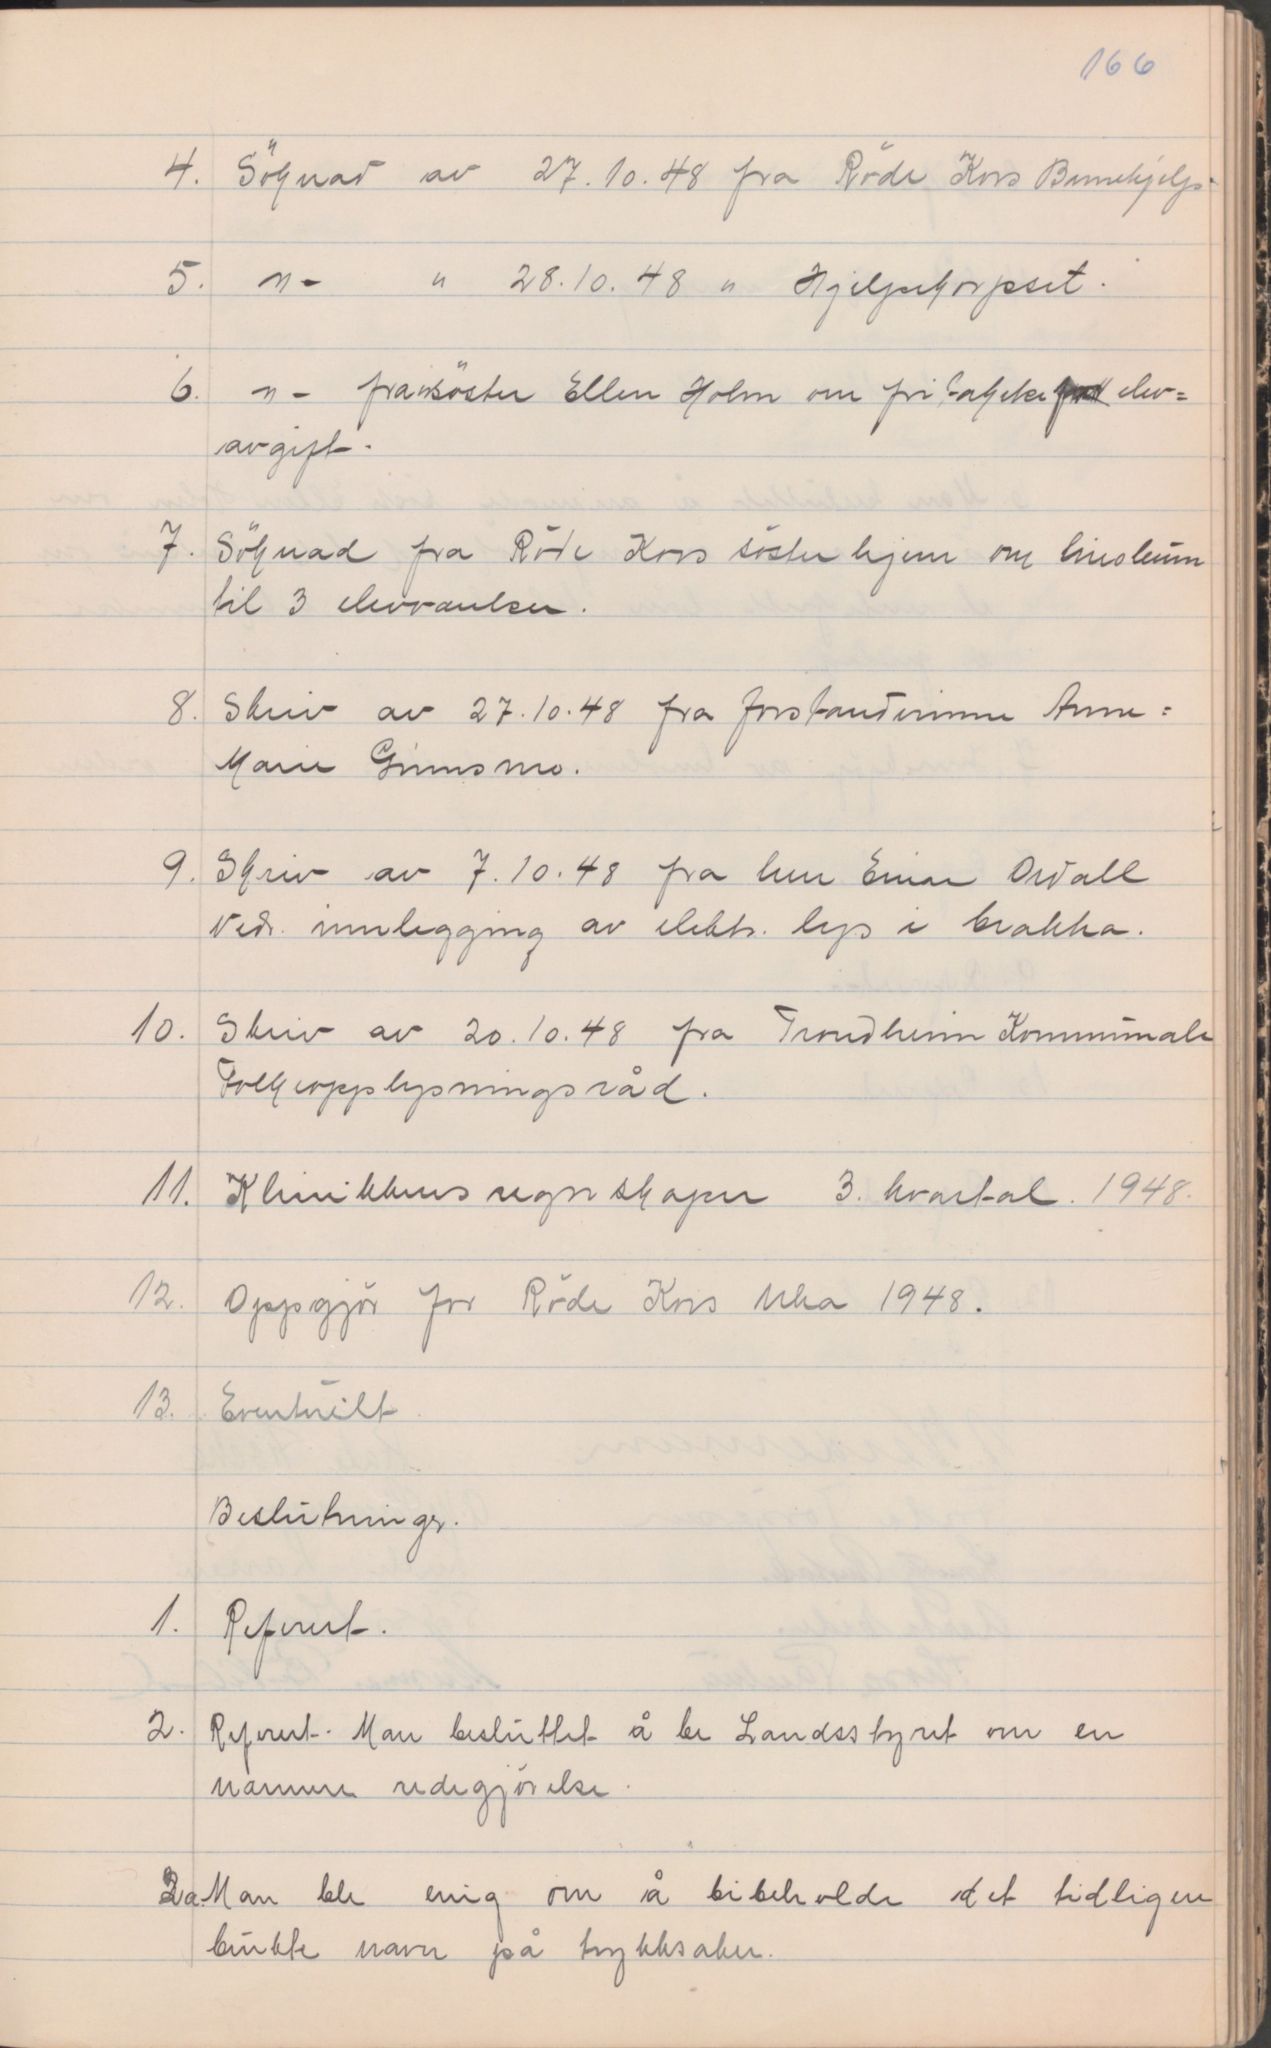 166
4. Söknad av 27.10.48 fra Röde Kors Barnehjelp-
5. "- " 28.10.48 " Hjelpekorpset.
6. "- fra söster Ellen Holm om fritakelse elev=
avgift.
7. Söknad fra Röde Kors sösterhjem om linoleum
til 3 elevværelser.
8. Skriv av 27.10.48 fra forstanderinne Anne=
Marie Grimsmo.
9. Skriv av 7.10.48 fra herr Einar Ordall
vedr. innlegging av elektr. lys i brakka.
10. Skriv av 20.10.48 fra Trondheim Kommunale
Folkeopplysningsråd.
11. Klinikkens regnskaper 3. kvartal. 1948.
12. Oppgjör for Röde Kors Uka 1948.
13. Eventuelt
Beslutninger.
1. Referert.
2. Referert. Man besluttet å be Landsstyret om en
nærmere redegjörelse.
2a Man ble enig om å bibeholde det tidligere
brukte navn på trykksaker.